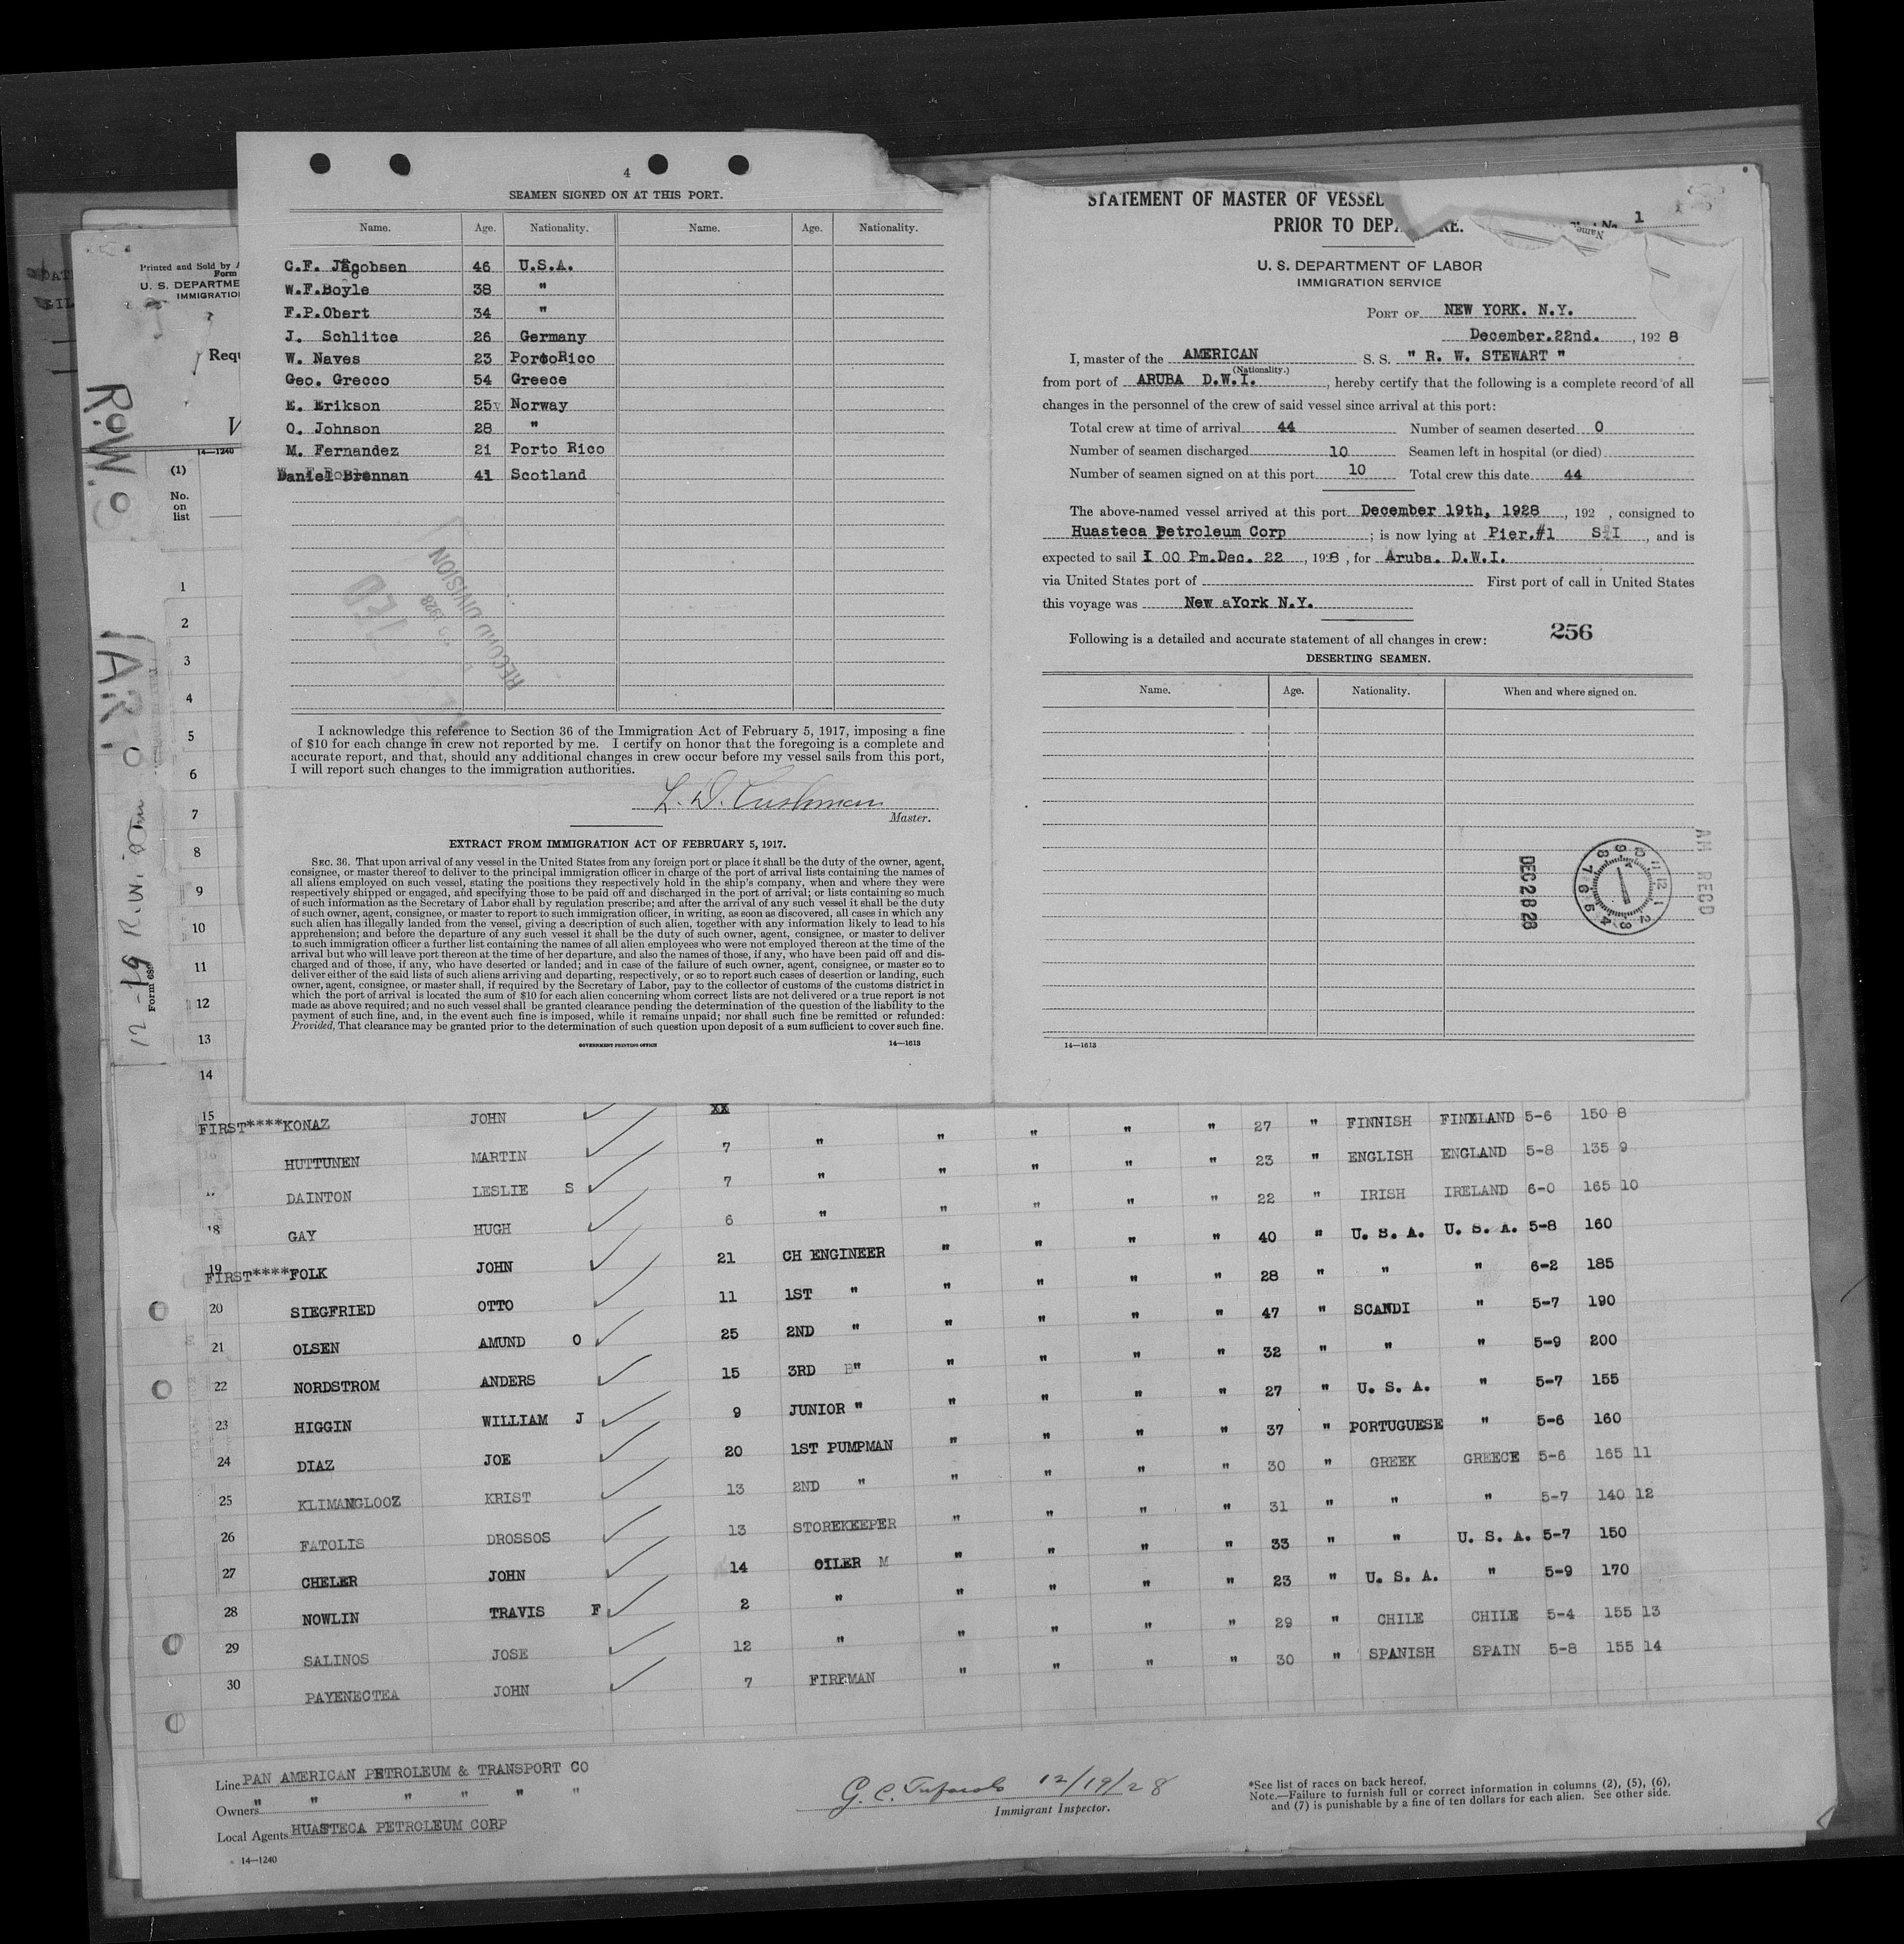 4
SEAMEN SIGNED ON AT THIS PORT.
Name. Age. Nationality. Name. Age. Nationality.
C.F. Jacobsen 46 U.S.A.
W.F.Boyle 38 "
F.P.Obert 34 "
J. Schlitce 26 Germany
W. Naves 23 PortoRico
Geo. Grecco 54 Greece
E. Erikson 25 Norway
O. Johnson 28 "
M. Fernandez 21 Porto Rico
Daniel Brennan 41 Scotland
RECORD DIVISION
1928
I acknowledge this reference to Section 36 of the Immigration Act of February 5, 1917, imposing a fine
of $10 for each change in crew not reported by me. I certify on honor that the foregoing is a complete and
accurate report, and that, should any additional changes in crew occur before my vessel sails from this port,
I will report such changes to the immigration authorities.
L. D. Cushman
Master.
EXTRACT FROM IMMIGRATION ACT OF FEBRUARY 5, 1917.
SEC. 36. That upon arrival of any vessel in the United States from any foreign port or place it shall be the duty of the owner, agent,
consignee, or master thereof to deliver to the principal immigration officer in charge of the port of arrival lists containing the names of
all aliens employed on such vessel, stating the positions they respectively hold in the ship's company, when and where they were
respectively shipped or engaged, and specifying those to be paid off and discharged in the port of arrival; or lists containing so much
of such information as the Secretary of Labor shall by regulation prescribe; and after the arrival of any such vessel it shall be the duty
of such owner, agent, consignee, or master to report to such immigration officer, in writing, as soon as discovered, all cases in which any
such alien has illegally landed from the vessel, giving a description of such alien, together with any information likely to lead to his
apprehension; and before the departure of any such vessel it shall be the duty of such owner, agent, consignee, or master to deliver
to such immigration officer a further list containing the names of all alien employees who were not employed thereon at the time of the
arrival but who will leave port thereon at the time of her departure, and also the names of those, if any, who have been paid off and dis-
charged and of those, if any, who have deserted or landed; and in case of the failure of such owner, agent, consignee, or master so to
deliver either of the said lists of such aliens arriving and departing, respectively, or so to report such cases of desertion or landing, such
owner, agent, consignee, or master shall, if required by the Secretary of Labor, pay to the collector of customs of the customs district in
which the port of arrival is located the sum of $10 for each alien concerning whom correct lists are not delivered or a true report is not
made as above required; and no such vessel shall be granted clearance pending the determination of the question of the liability to the
payment of such fine, and, in the event such fine is imposed, while it remains unpaid; nor shall such fine be remitted or refunded:
Provided, That clearance may be granted prior to the determination of such question upon deposit of a sum sufficient to cover such fine.
GOVERNMENT PRINTING OFFICE 14—1613
STATEMENT OF MASTER OF VESSEL
PRIOR TO
1
U. S. DEPARTMENT OF LABOR
IMMIGRATION SERVICE
PORT OF NEW YORK. N.Y.
December.22nd. , 192 8
I, master of the AMERICAN S. S. " R. W. STEWART "
(Nationality.)
from port of ARUBA D.W.I. , hereby certify that the following is a complete record of all
changes in the personnel of the crew of said vessel since arrival at this port:
Total crew at time of arrival 44 Number of seamen deserted 0
Number of seamen discharged 10 Seamen left in hospital (or died)
Number of seamen signed on at this port 10 Total crew this date 44
The above-named vessel arrived at this port December 19th, 1928 , 192 , consigned to
Huasteca Petroleum Corp ; is now lying at Pier.#1 S I , and is
expected to sail I 00 Pm.Dec. 22 , 1928 , for Aruba. D.W.I.
via United States port of First port of call in United States
this voyage was New aYork N.Y.
Following is a detailed and accurate statement of all changes in crew: 256
DESERTING SEAMEN.
Name. Age. Nationality. When and where signed on.
DEC 28 28
AM RECD
14—1613
Printed and Sold by
Form
U. S. DEPARTME
IMMIGRATIO
Requ
14—1240
(1)
No.
on
list
R.W.
12-19
Form 689
1
2
3
4
5
6
7
8
9
10
11
12
13
14
15 FIRST****KONAZ JOHN XX
HUTTUNEN MARTIN 7 " " " " " 27 " FINNISH FINLAND 5-6 150 8
17 DAINTON LESLIE S 7 " " " " " 23 " ENGLISH ENGLAND 5-8 135 9
18 GAY HUGH 6 " " " " " 22 " IRISH IRELAND 6-0 165 10
19 FIRST****FOLK JOHN 21 CH ENGINEER " " " " 40 " U. S. A. U. S. A. 5-8 160
20 SIEGFRIED OTTO 11 1ST " " " " " 28 " " " 6-2 185
21 OLSEN AMUND O 25 2ND " " " " " 47 " SCANDI " 5-7 190
22 NORDSTROM ANDERS 15 3RD " " " " " 32 " " " 5-9 200
23 HIGGIN WILLIAM J 9 JUNIOR " " " " " 27 " U. S. A. " 5-7 155
24 DIAZ JOE 20 1ST PUMPMAN " " " " 37 " PORTUGUESE " 5-6 160
25 KLIMANGLOOZ KRIST 13 2ND " " " " " 30 " GREEK GREECE 5-6 165 11
26 FATOLIS DROSSOS 13 STOREKEEPER " " " " 31 " " " 5-7 140 12
27 CHELER JOHN 14 OILER M " " " " 33 " " U. S. A. 5-7 150
28 NOWLIN TRAVIS F 2 " " " " " 23 " U. S. A. " 5-9 170
29 SALINOS JOSE 12 " " " " " 29 " CHILE CHILE 5-4 155 13
30 PAYENECTEA JOHN 7 FIREMAN " " " " 30 " SPANISH SPAIN 5-8 155 14
Line PAN AMERICAN PETROLEUM & TRANSPORT CO
Owners " " " " "
Local Agents HUASTECA PETROLEUM CORP
14—1240
G. C. 12/19/28
Immigrant Inspector.
*See list of races on back hereof.
Note.—Failure to furnish full or correct information in columns (2), (5), (6),
and (7) is punishable by a fine of ten dollars for each alien. See other side.